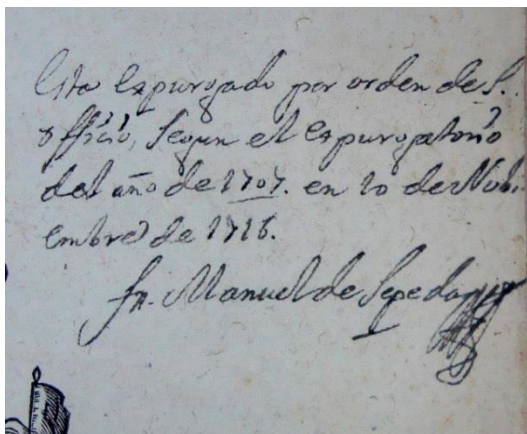 Esta expurgado por orden del S.
officio, segun el expurgatorio
del año de 1707. en 20 de Nobi
embre de 1716.
fr. Manuel de Sepeda